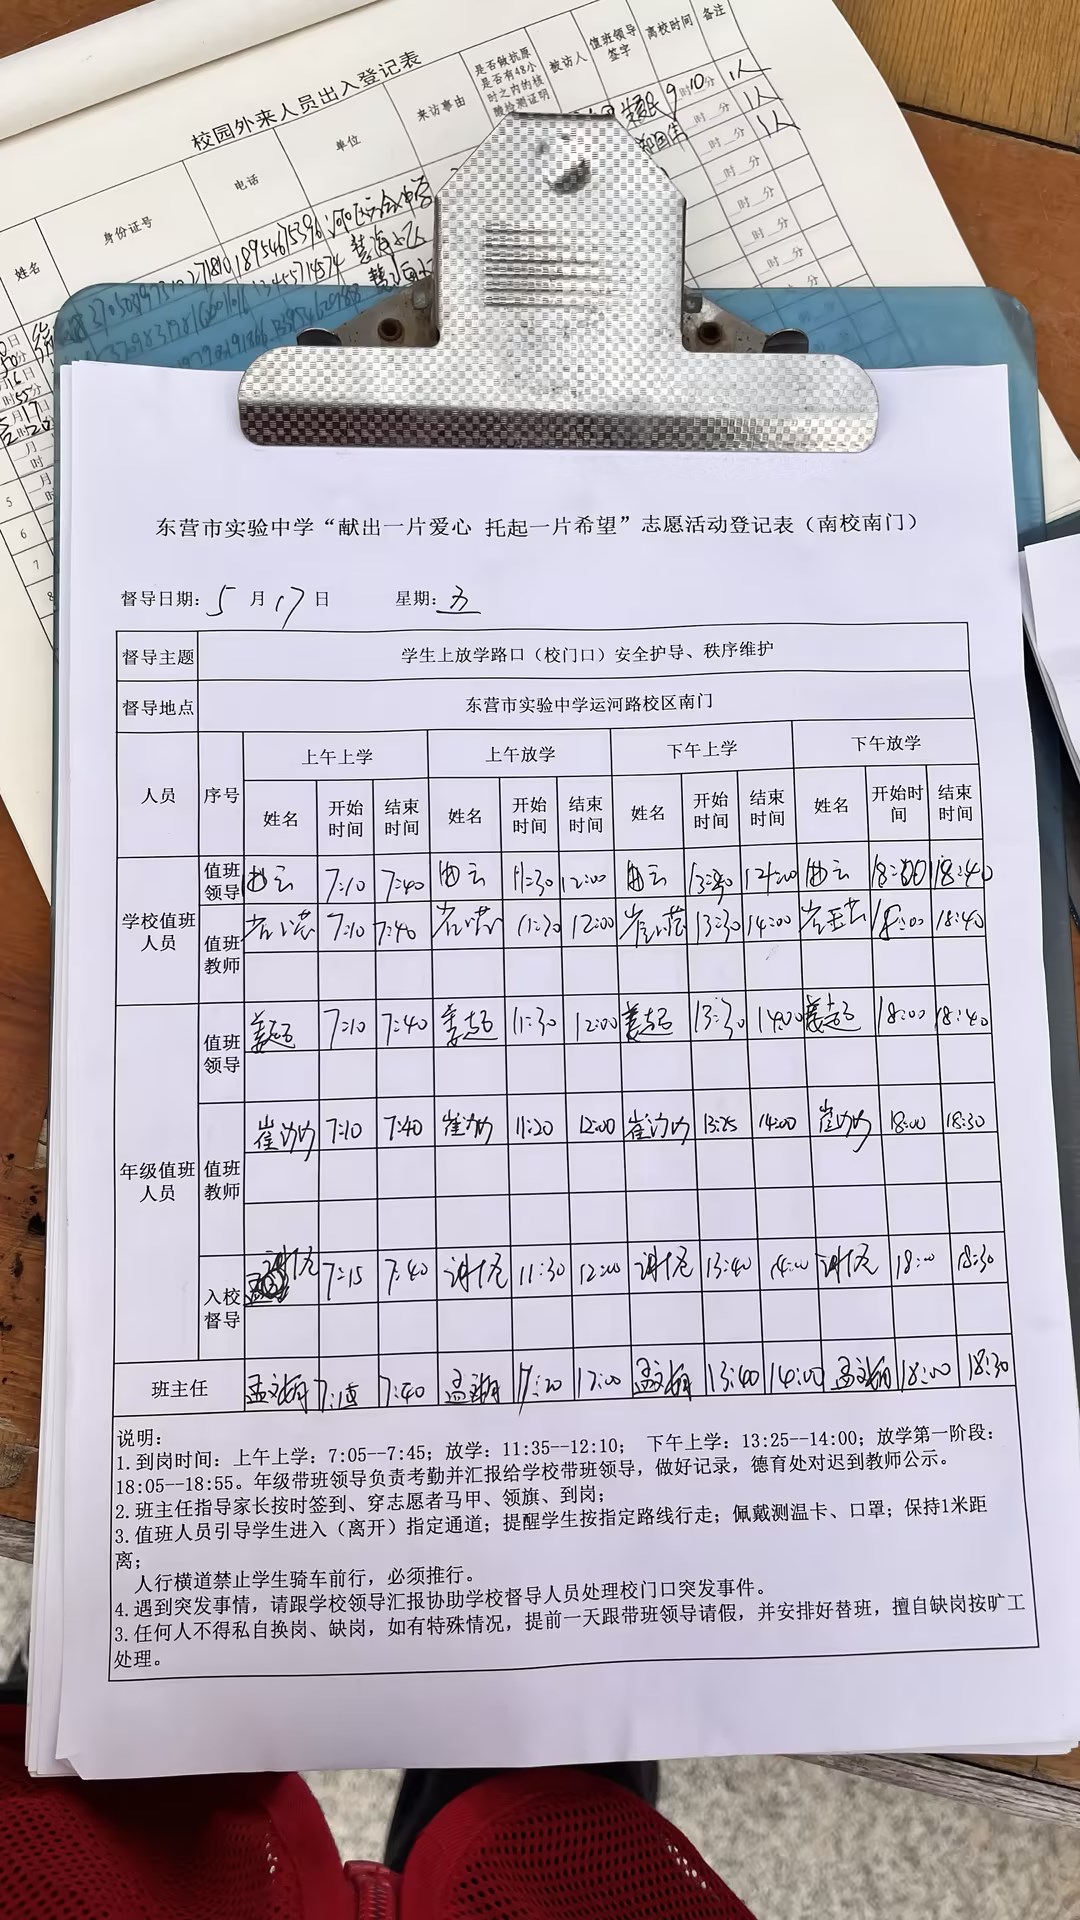 校园外来人员出入登记表
姓名 身份证号 电话 单位 来访事由 是否做抗原是否有48小时之内的核酸检测证明 被访人 值班领导签字 离校时间 备注
9时10分 1人
时 分 1人
时 分 1人
时 分
时 分
时 分
时 分
5
6
7
8
东营市实验中学“献出一片爱心 托起一片希望”志愿活动登记表（南校南门）
督导日期：5月17日 星期：五
督导主题 学生上放学路口（校门口）安全护导、秩序维护
督导地点 东营市实验中学运河路校区南门
人员 序号 上午上学 上午放学 下午上学 下午放学
姓名 开始时间 结束时间 姓名 开始时间 结束时间 姓名 开始时间 结束时间 姓名 开始时间 结束时间
学校值班人员 值班领导 曲云 7:10 7:40 曲云 11:30 12:00 曲云 曲云 18:40
值班教师 7:10 7:40 11:30 12:00 13:30 14:00 18:00 18:40
年级值班人员 值班领导 姜超 7:10 7:40 姜超 11:30 12:00 姜超 13:30 14:00 姜超 18:00 18:40
值班教师 崔汐汐 7:10 7:40 崔汐汐 11:20 12:00 崔汐汐 13:25 14:00 崔汐汐 18:00 18:30
入校督导 7:15 7:40 11:30 12:00 13:40 14:00 18:00 18:30
班主任 孟文娟 7:15 7:40 孟文娟 12:00 孟文娟 13:40 14:00 孟文娟 18:00 18:30
说明：
1.到岗时间：上午上学：7:05--7:45；放学：11:35--12:10； 下午上学：13:25--14:00；放学第一阶段：
18:05--18:55。年级带班领导负责考勤并汇报给学校带班领导，做好记录，德育处对迟到教师公示。
2.班主任指导家长按时签到、穿志愿者马甲、领旗、到岗；
3.值班人员引导学生进入（离开）指定通道；提醒学生按指定路线行走；佩戴测温卡、口罩；保持1米距
离；
人行横道禁止学生骑车前行，必须推行。
4.遇到突发事情，请跟学校领导汇报协助学校督导人员处理校门口突发事件。
3.任何人不得私自换岗、缺岗，如有特殊情况，提前一天跟带班领导请假，并安排好替班，擅自缺岗按旷工
处理。